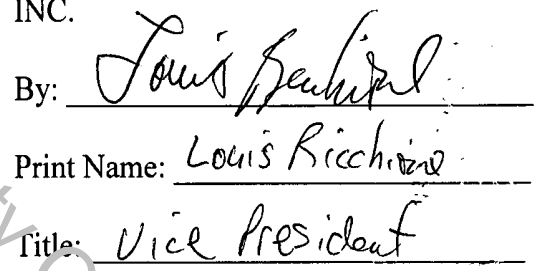 INC.
By: Louis
Print Name: Louis Ricchione
Title: Vice President